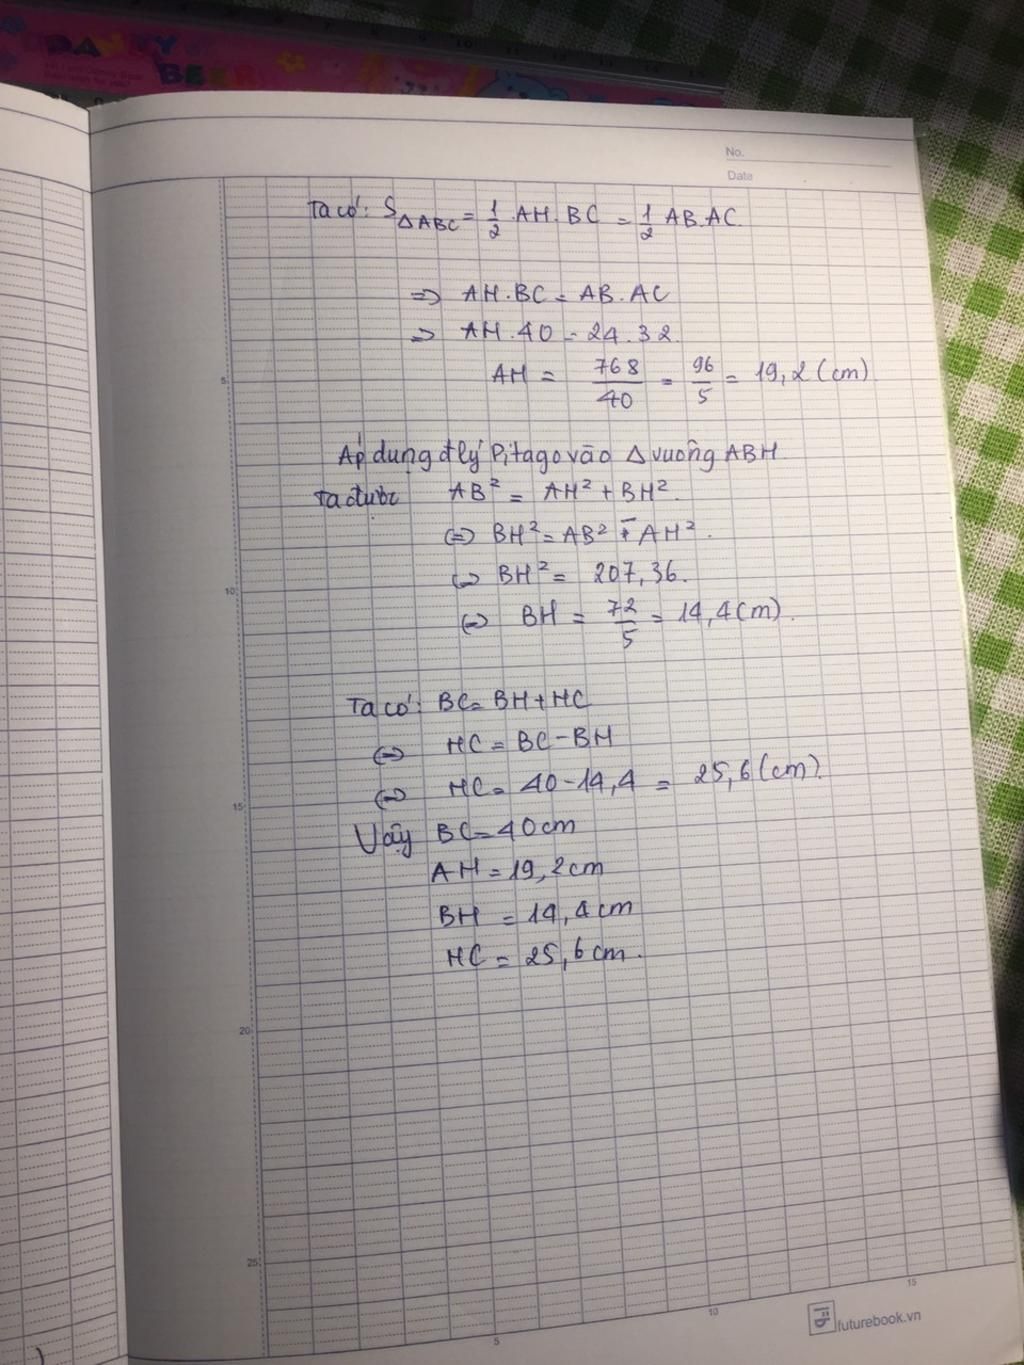 DANNY
BEER
No.
Date
Ta có: S△ABC = 1/2 . AH . BC = 1/2 AB . AC.
=> AH . BC = AB . AC
=> AH . 40 = 24 . 32.
AH = 768/40 = 96/5 = 19,2 (cm)
Áp dụng đlý Pitago vào △ vuông ABH.
Ta được AB² = AH² + BH².
<=> BH² = AB² - AH².
<=> BH² = 207,36.
<=> BH = 72/5 = 14,4 (cm).
Ta có: BC = BH + HC
<=> HC = BC - BH
<=> HC = 40 - 14,4 = 25,6 (cm).
Vậy BC = 40 cm
AH = 19,2 cm
BH = 14,4 cm
HC = 25,6 cm.
5
10
15
20
25
5
10
15
futurebook.vn